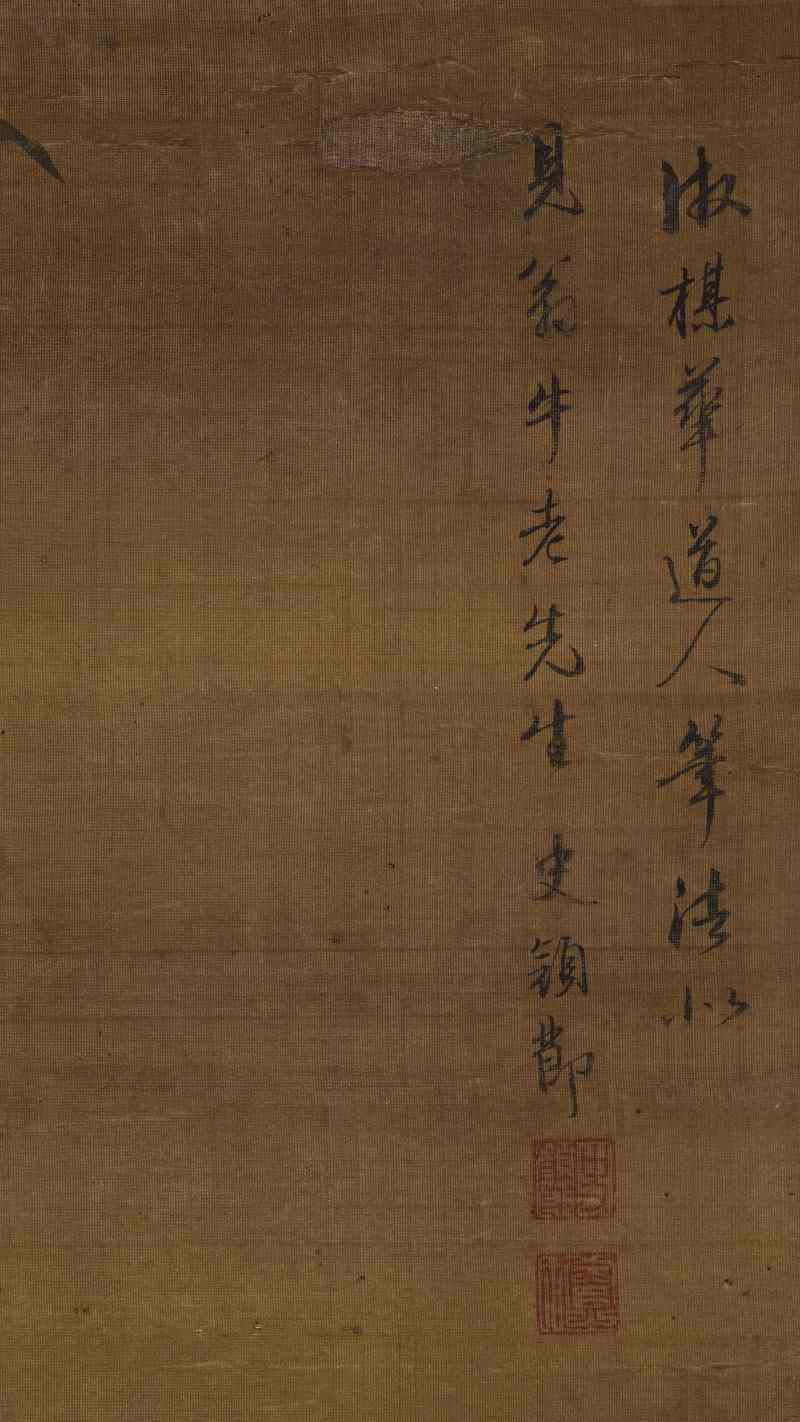 淑楳華道人筆法似
見翁牛老先生 史顏節